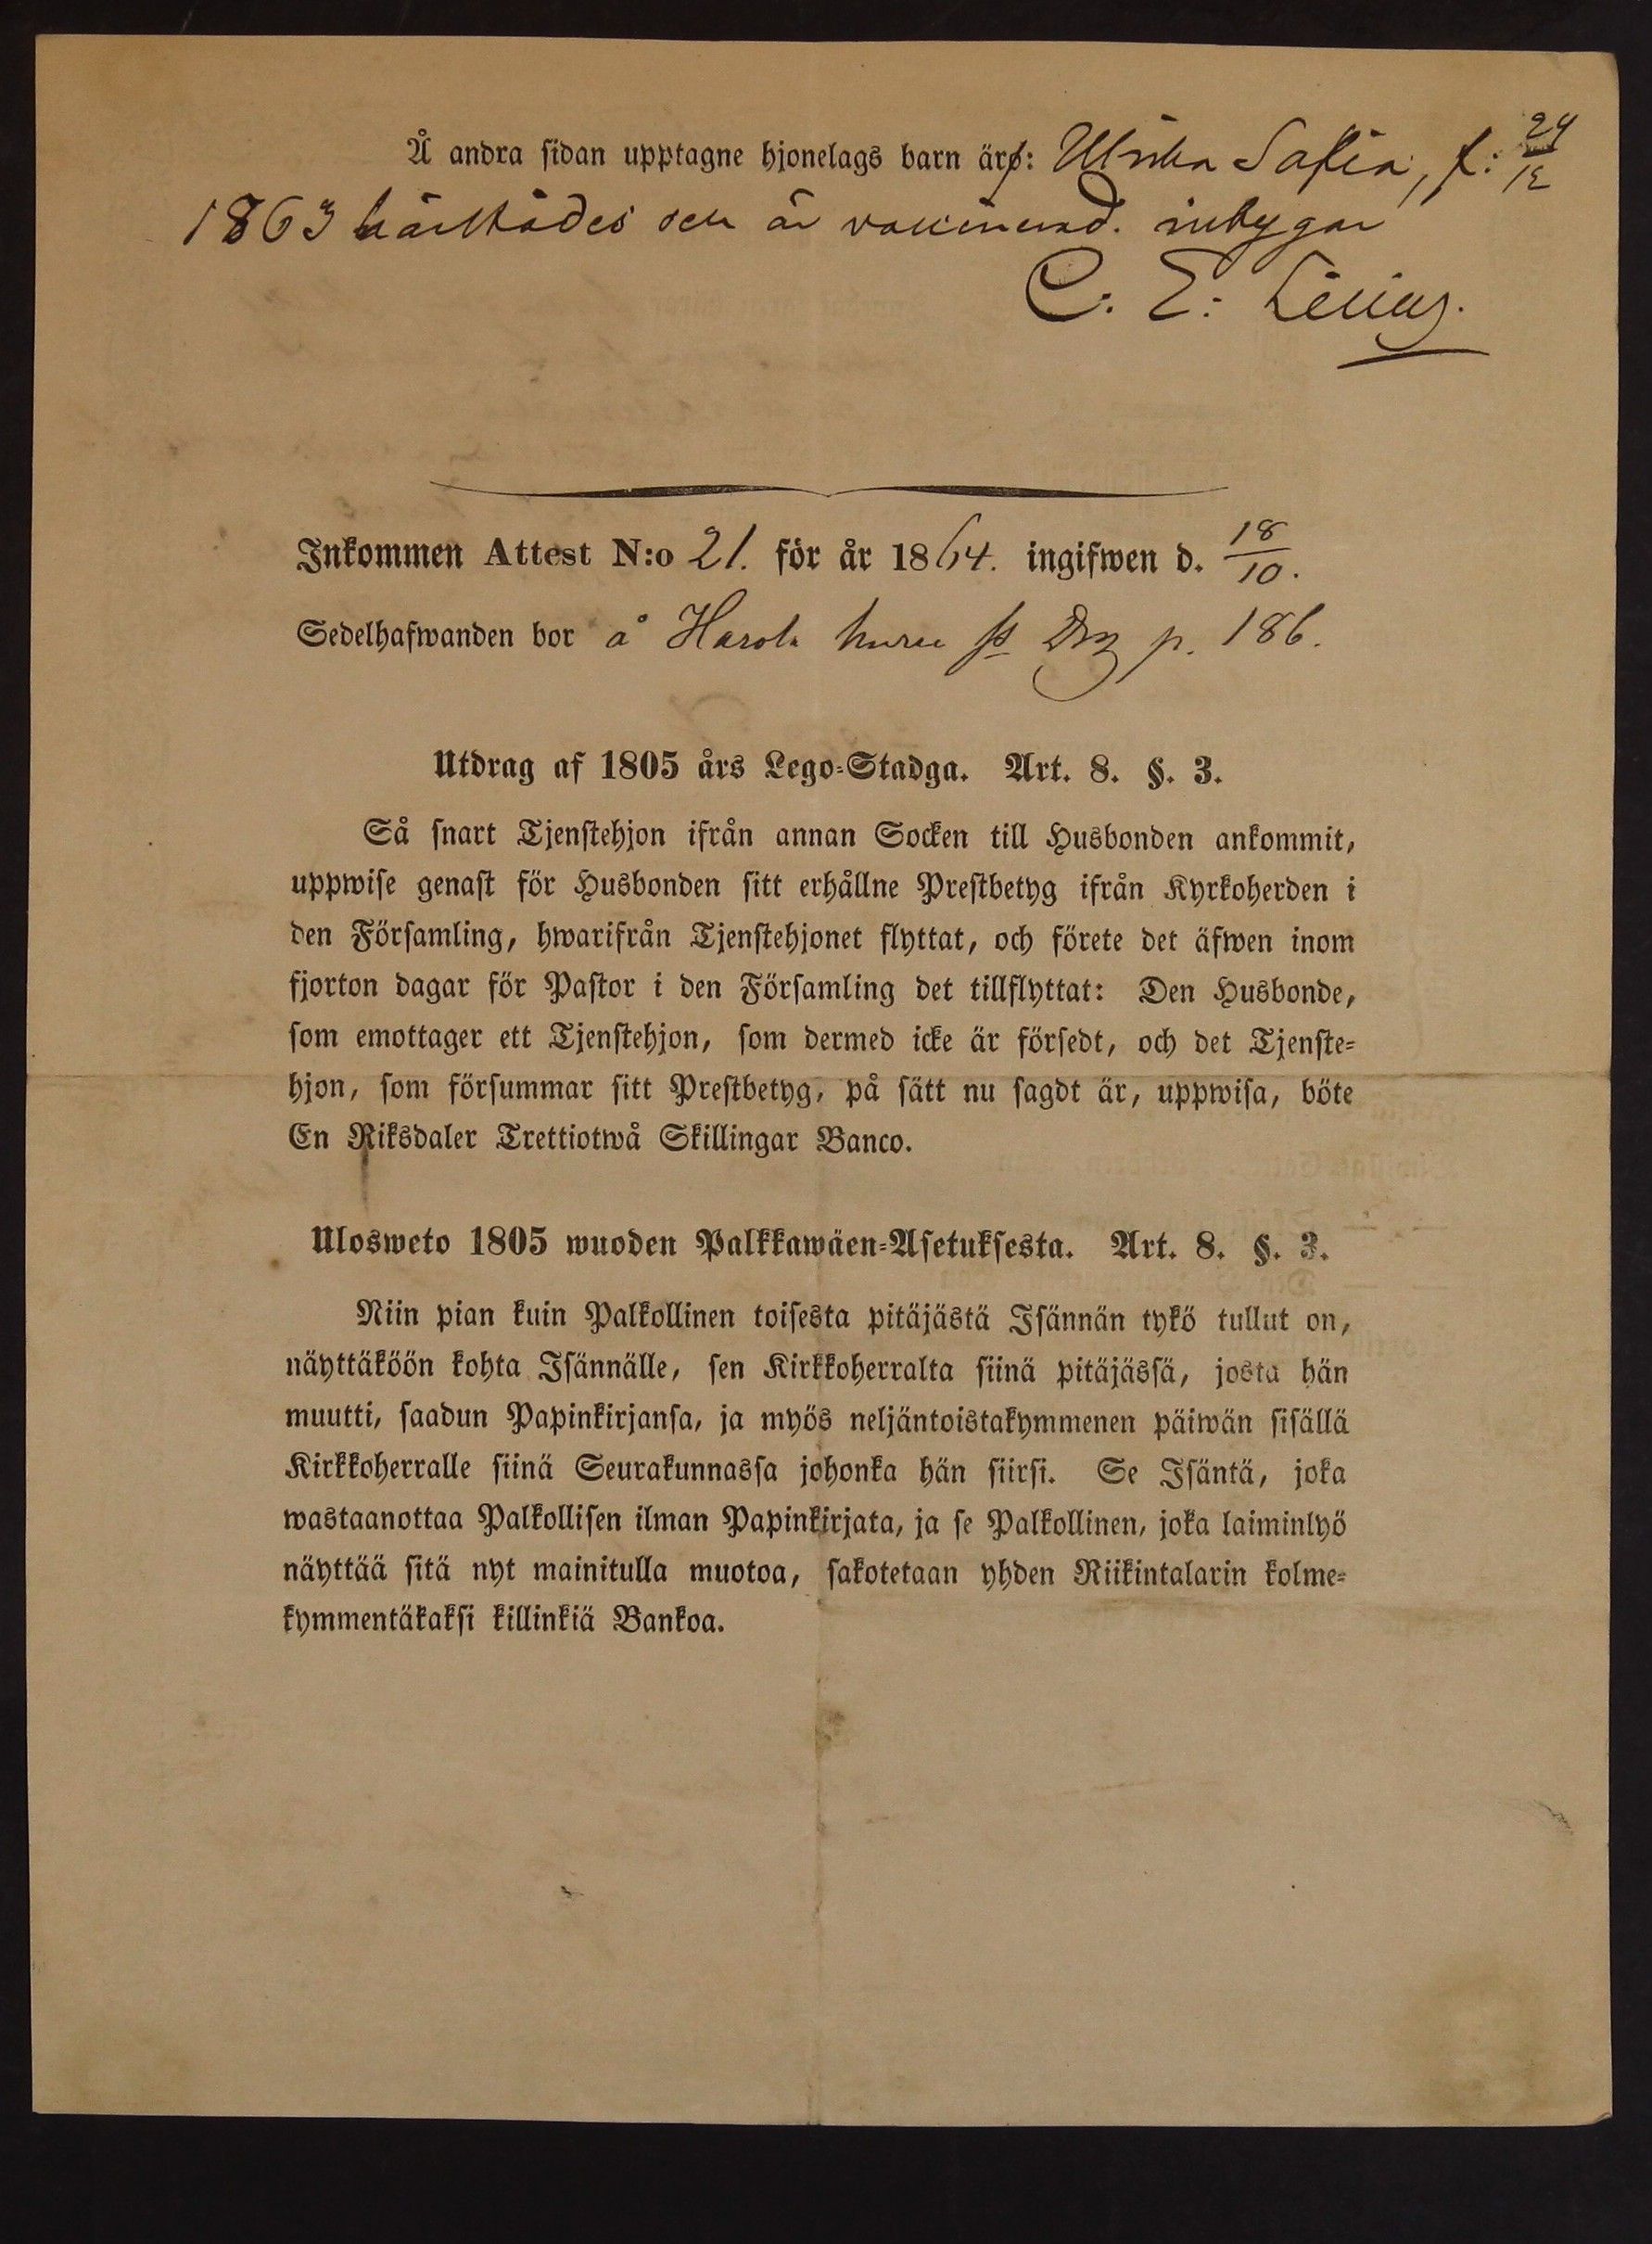 Å andra sidan upptagne hjonelags barn är: Ulrika Sofia, f: 24/12
1863 härstädes och är vaccinerad. intygar
C. E:
Inkommen Attest N:o 21. för år 1864. ingifwen d. 18/10.
Sedelhafwanden bor å Harola p. 186.
Utdrag af 1805 års Lego-Stadga. Art. 8. §. 3.
Så snart Tjenstehjon ifrån annan Socken till Husbonden ankommit,
uppwise genast för Husbonden sitt erhållne Prestbetyg ifrån Kyrkoherden i
den Församling, hwarifrån Tjenstehjonet flyttat, och förete det äfwen inom
fjorton dagar för Pastor i den Församling det tillflyttat: Den Husbonde,
som emottager ett Tjenstehjon, som dermed icke är försedt, och det Tjenste-
hjon, som försummar sitt Prestbetyg, på sätt nu sagdt är, uppwisa, böte
En Riksdaler Trettiotwå Skillingar Banco.
Ulosweto 1805 wuoden Palkkawäen-Asetuksesta. Art. 8. §. 3.
Niin pian kuin Palkollinen toisesta pitäjästä Isännän tykö tullut on,
näyttäköön kohta Isännälle, sen Kirkkoherralta siinä pitäjässä, josta hän
muutti, saadun Papinkirjansa, ja myös neljäntoistakymmenen päiwän sisällä
Kirkkoherralle siinä Seurakunnassa johonka hän siirsi. Se Isäntä, joka
wastaanottaa Palkollisen ilman Papinkirjata, ja se Palkollinen, joka laiminlyö
näyttää sitä nyt mainitulla muotoa, sakotetaan yhden Riikintalarin kolme-
kymmentäkaksi killinkiä Bankoa.